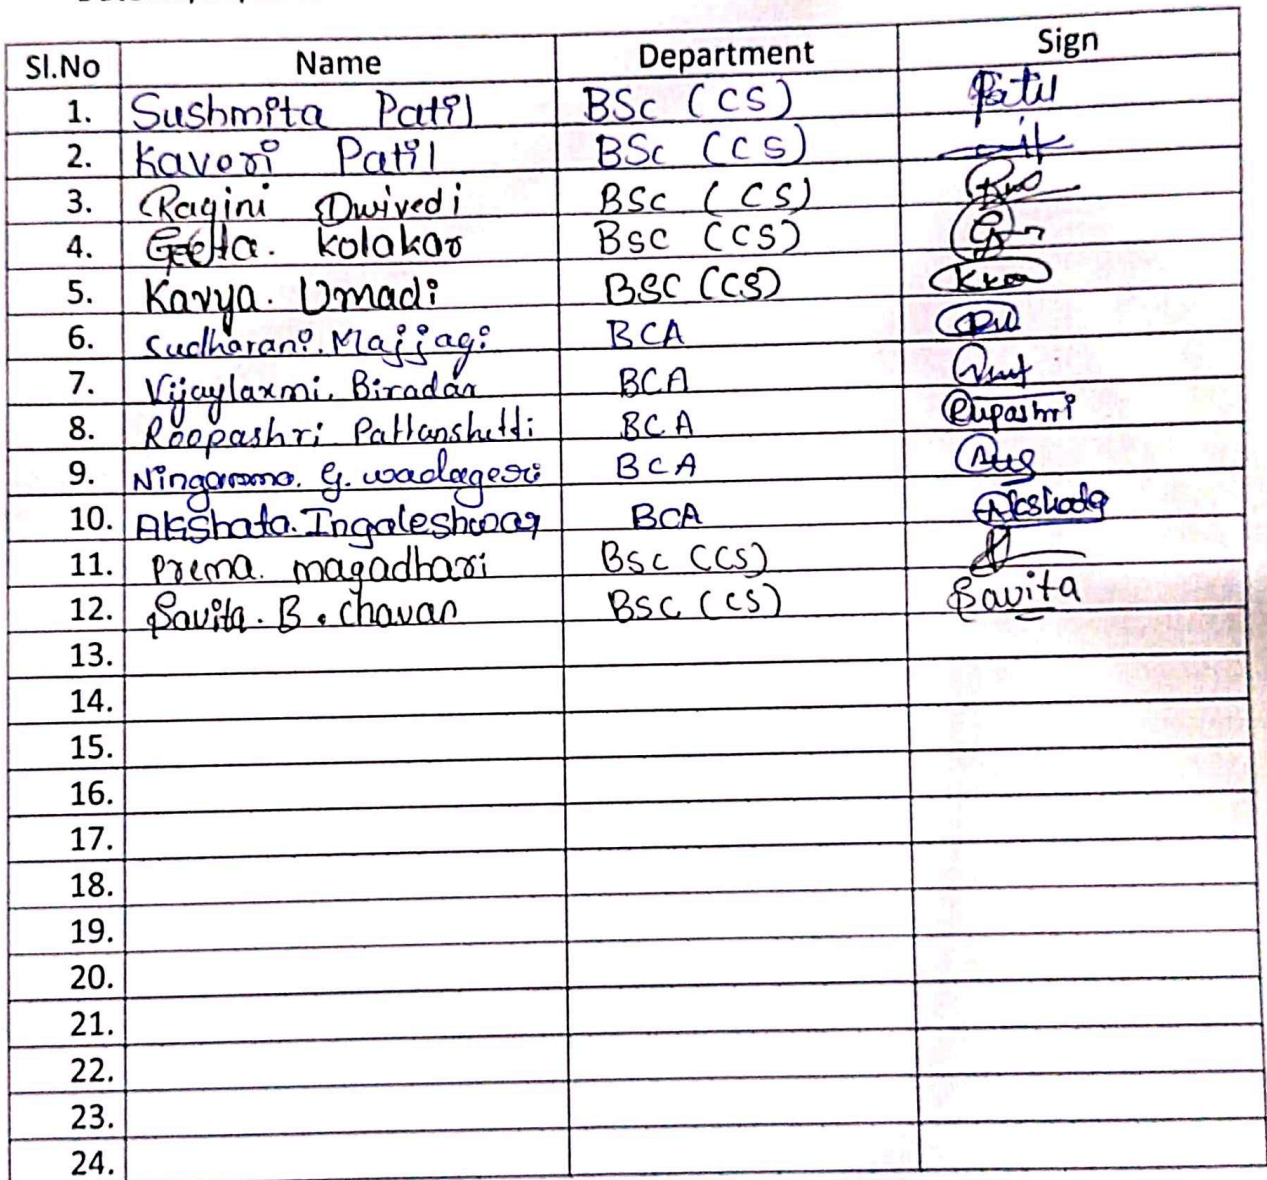 Sl.No Name Department Sign
1. Sushmita Patil BSc (CS) Patil
2. Kaveri Patil BSc (CS)
3. Ragini Dwivedi BSc (CS)
4. Geeta. Kolakar BSC (CS)
5. Kavya. Umadi BSC (CS)
6. Sudharani. Majjagi BCA
7. Vijaylaxmi. Biradar BCA
8. Roopashri Pattanshetti BCA Rupashri
9. Ningamma. G. wadageri BCA
10. Akshata. Ingaleshwar BCA Akshata
11. Prema. magadhari BSc (CS)
12. Savita. B. chavan BSC (CS) Savita
13.
14.
15.
16.
17.
18.
19.
20.
21.
22.
23.
24.